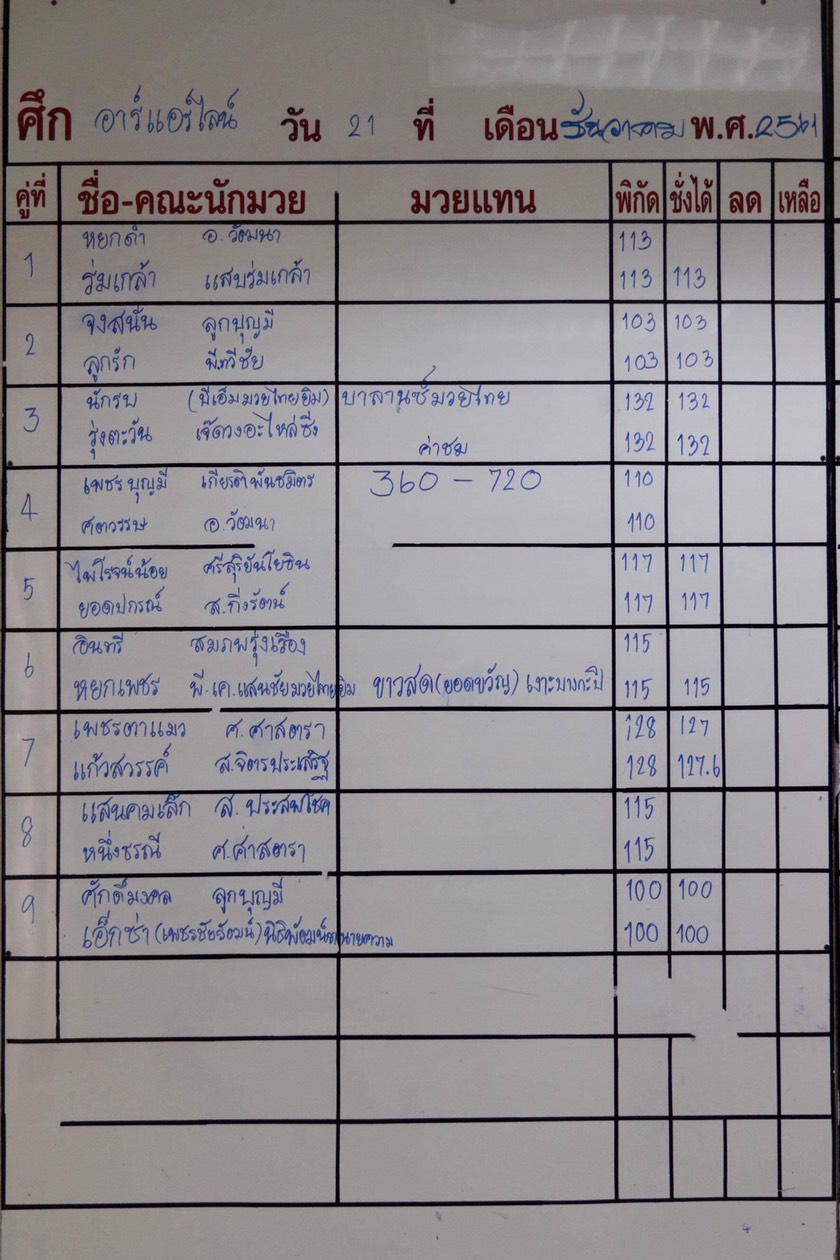 ศึก อาร์แอร์ไลน์ วัน 21 ที่ เดือน ธันวาคม พ.ศ. 2561
คู่ที่ ชื่อ-คณะนักมวย มวยแทน พิกัด ชั่งได้ ลด เหลือ
1 หยกดำ อ.วัฒนา 113
ร่มเกล้า แสบร่มเกล้า 113 113
2 จงสนั่น ลูกบุญมี 103 103
ลูกรัก พีทวีชัย 103 103
3 นักรบ (พีเอ็มมวยไทยยิม) บาลานซ์มวยไทย 132 132
รุ่งตะวัน เจ๊ดวงอะไหล่ซิ่ง 132 132
ค่าชม
4 เพชรบุญมี เกียรติพันธมิตร 360 - 720 110
ศตวรรษ อ.วัฒนา 110
5 ไพโรจน์น้อย ศรีสุริยันโยธิน 117 117
ยอดปกรณ์ ส.กิ่งรัตน์ 117 117
6 อินทรี สมภพรุ่งเรือง 115
หยกเพชร พี.เค.แสนชัยมวยไทยยิม ขาวสด (ยอดขวัญ) เงาะบางกะปิ 115 115
7 เพชรตาแมว ศ.ศาสตรา 128 127
แก้วสวรรค์ ส.จิตรประเสริฐ 128 127.6
8 แสนคมเล็ก ส.ประสพโชค 115
หนึ่งธรณี ศ.ศาสตรา 115
9 ศักดิ์มงคล ลูกบุญมี 100 100
เอ็กซ่า (เพชรชัยวัฒน์) นิธิพัฒน์ทนายความ 100 100